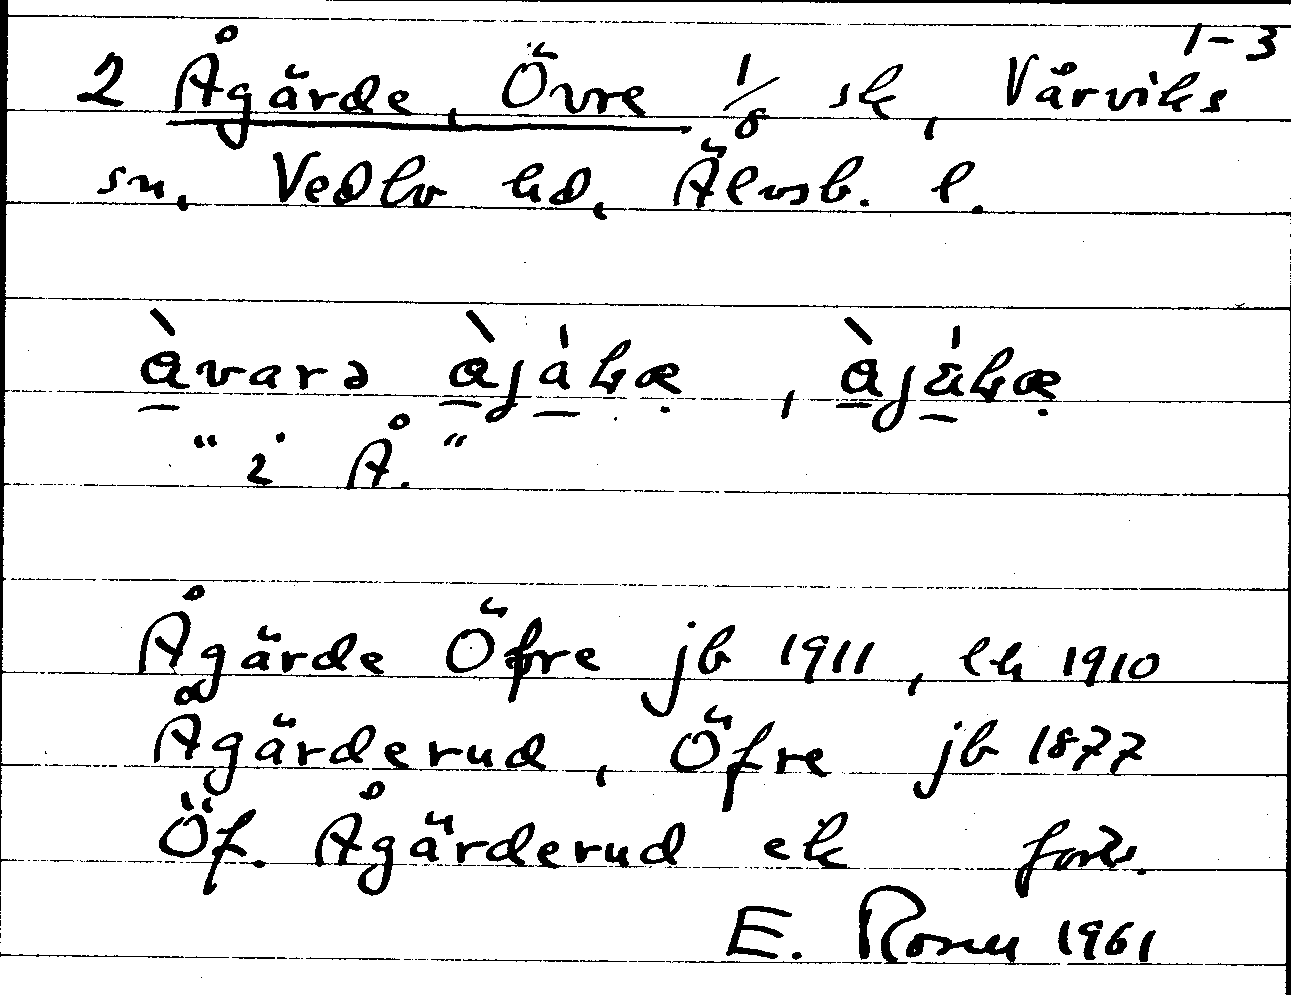 1-3
2 Ågärde, Övre 1/8 sk, Vårviks
sn, Vedbo hd, Älvsb. l.
àvarə àjàkæ, àjækæ
"i Å."
Ågärde Öfre jb 1911, ek 1910
Ågärderud, Öfre jb 1877
Öf. Ågärderud ek forts.
E. Rosell 1961